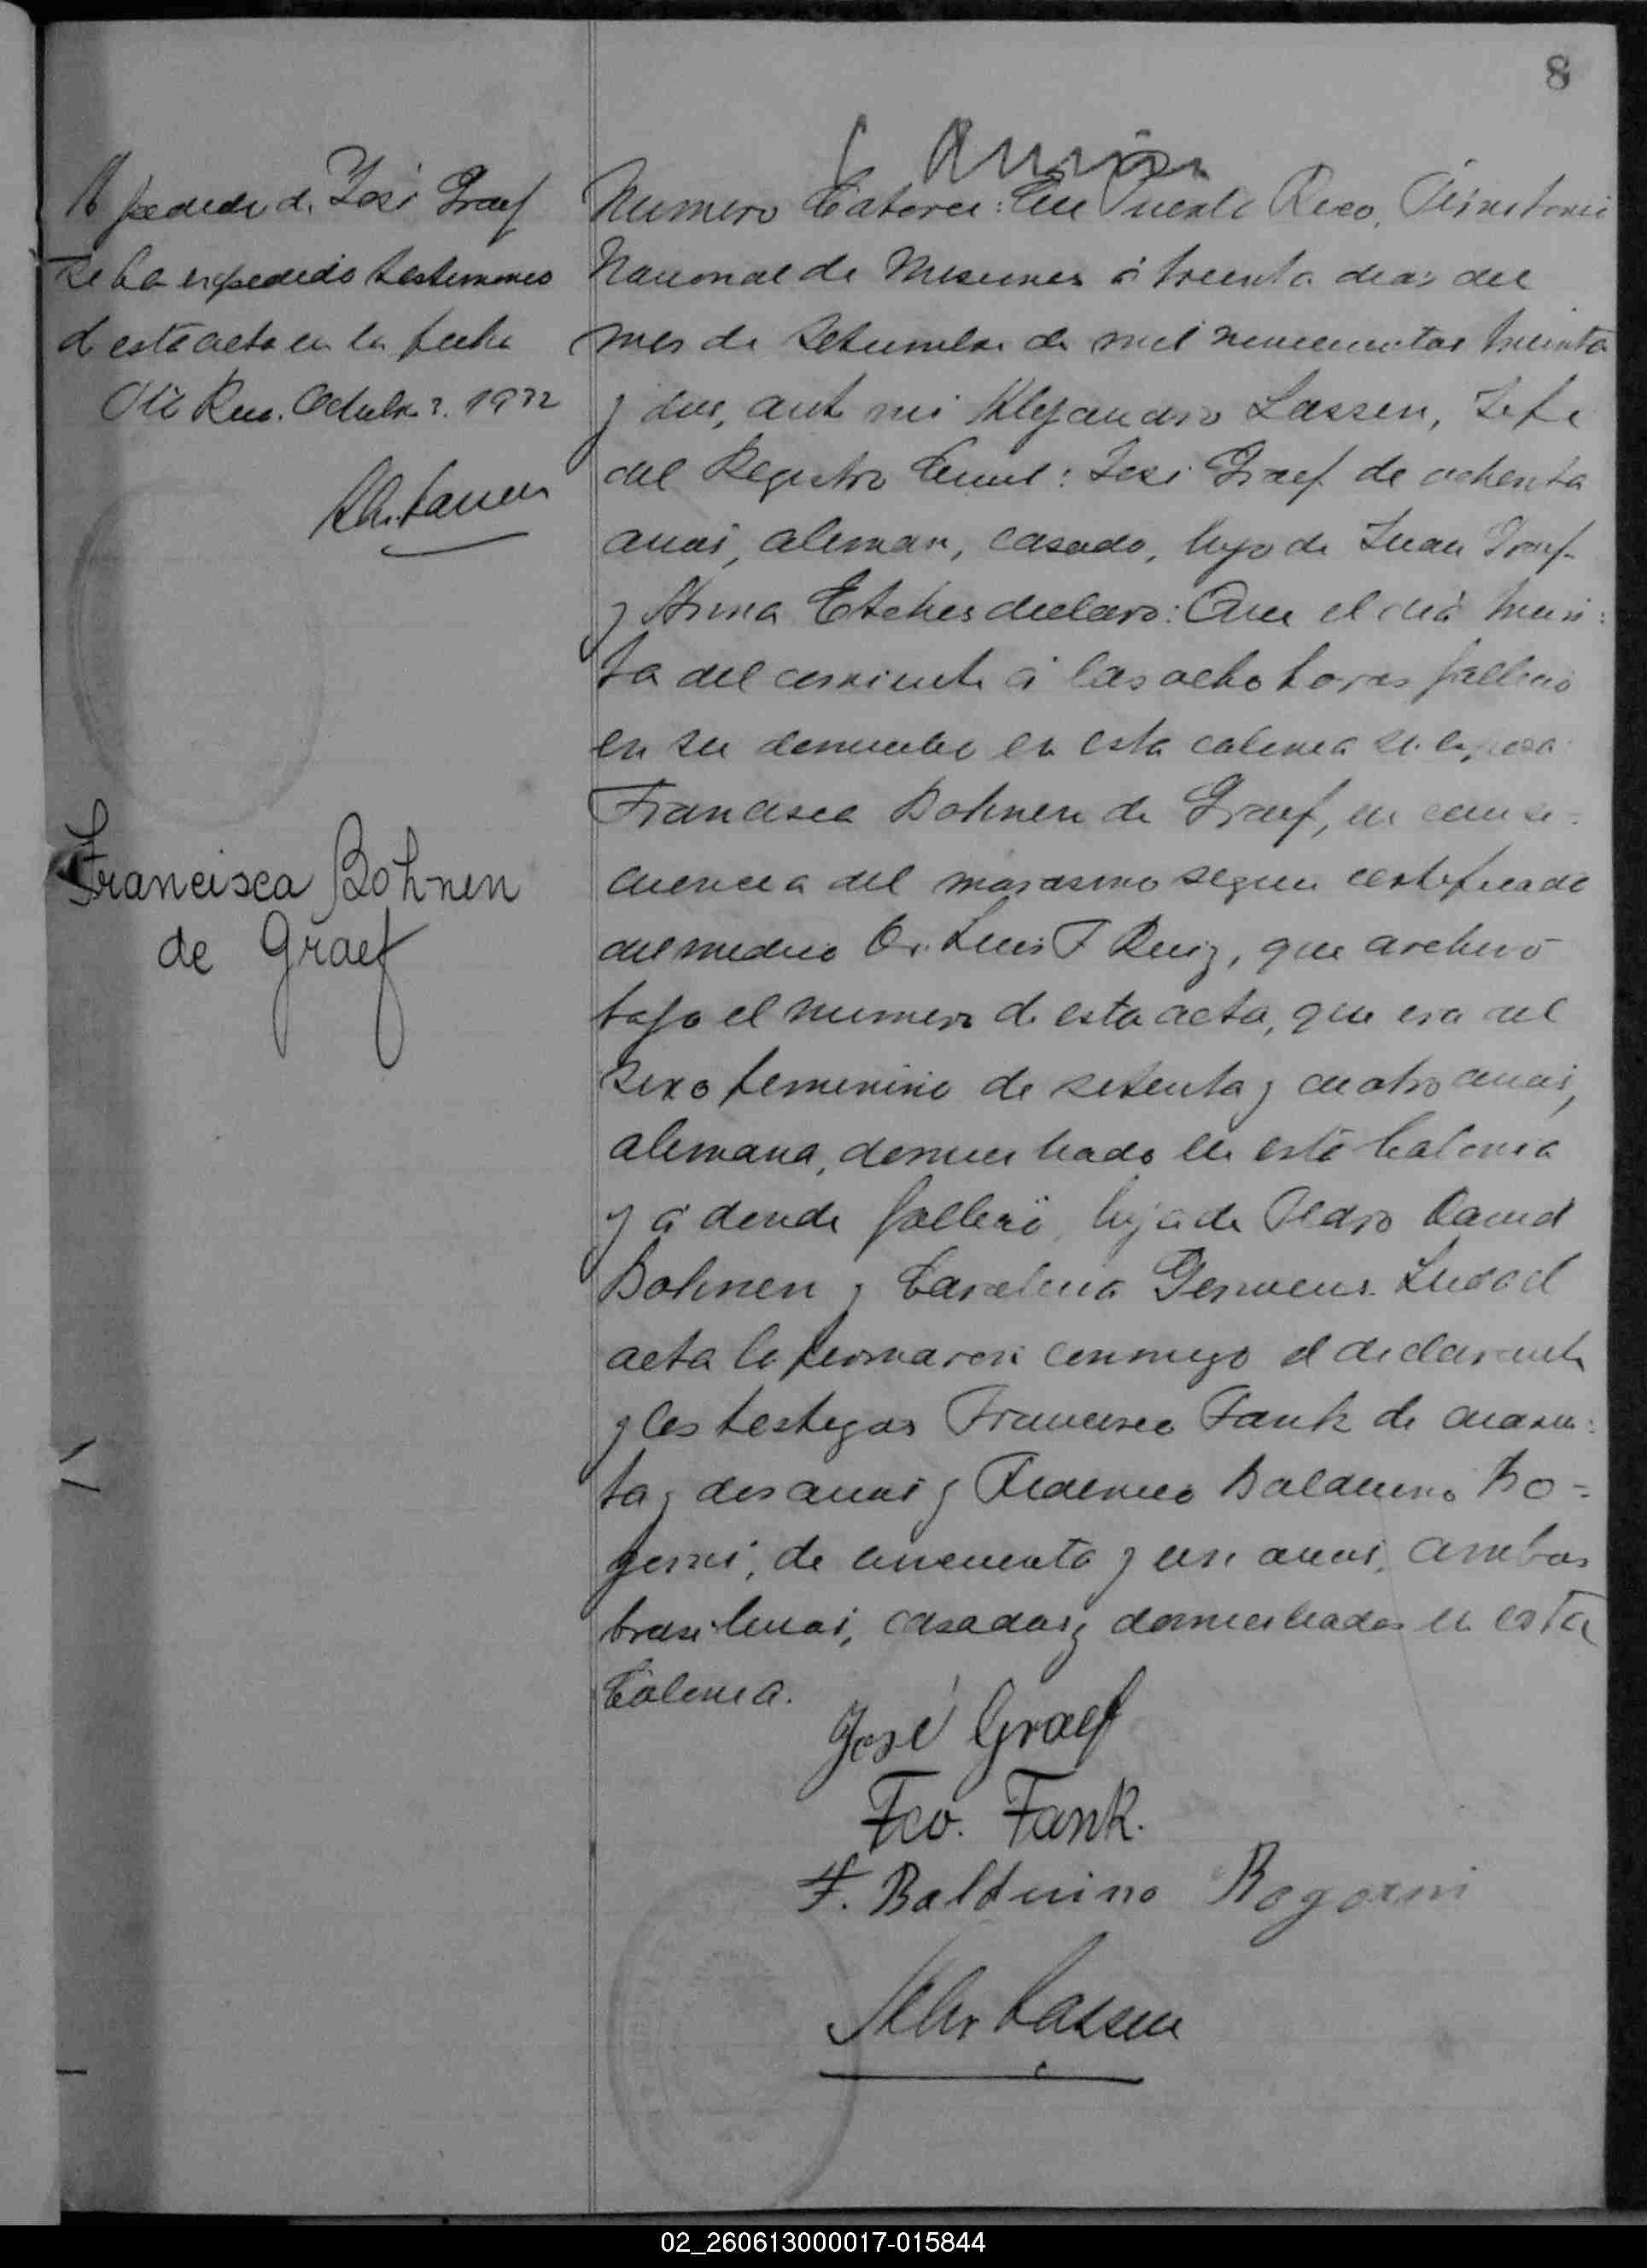 8
A pedido de José Graef
se ha expedido testimonio
de esta acta en la fecha
Pto Rico. Octubre 3. 1932
Francisca Bohnen
de Graef
Numero Catorce: En Puerto Rico, Territorio
Nacional de Misiones á treinta dias del
mes de Setiembre de mil novecientos treinta
y dos, ante mi Alejandro Lassen, Jefe
del Registro Civil: José Graef de ochenta
anos, aleman, casado, hijo de Juan Graef
y Anna Etches declaro: Que el dia trein-
ta del corriente á las ocho horas falleció
en su domicilio en esta colonia su esposa
Francisca Bohnen de Graef, en conse-
cuencia del marasmo segun certificado
del medico Dr. Luis F Ruiz, que archivo
bajo el numero de esta acta, que era del
sexo femenino de setenta y cuatro anos,
alemana, domiciliado en esta Colonia
y á donde falleció, hija de Pedro David
Bohnen y Carolina
acta la firmaron conmigo el declarante
y los testigos Francisco Fank de cuaren-
ta y dos anos y Federico Balduino Bo-
gorni, de cincuenta y un anos, ambos
brasilenos, casados y domiciliados en esta
Colonia.
José Graef
Fco. Fank.
F. Balduino Bogorni
Alej Lassen
02_260613000017-015844